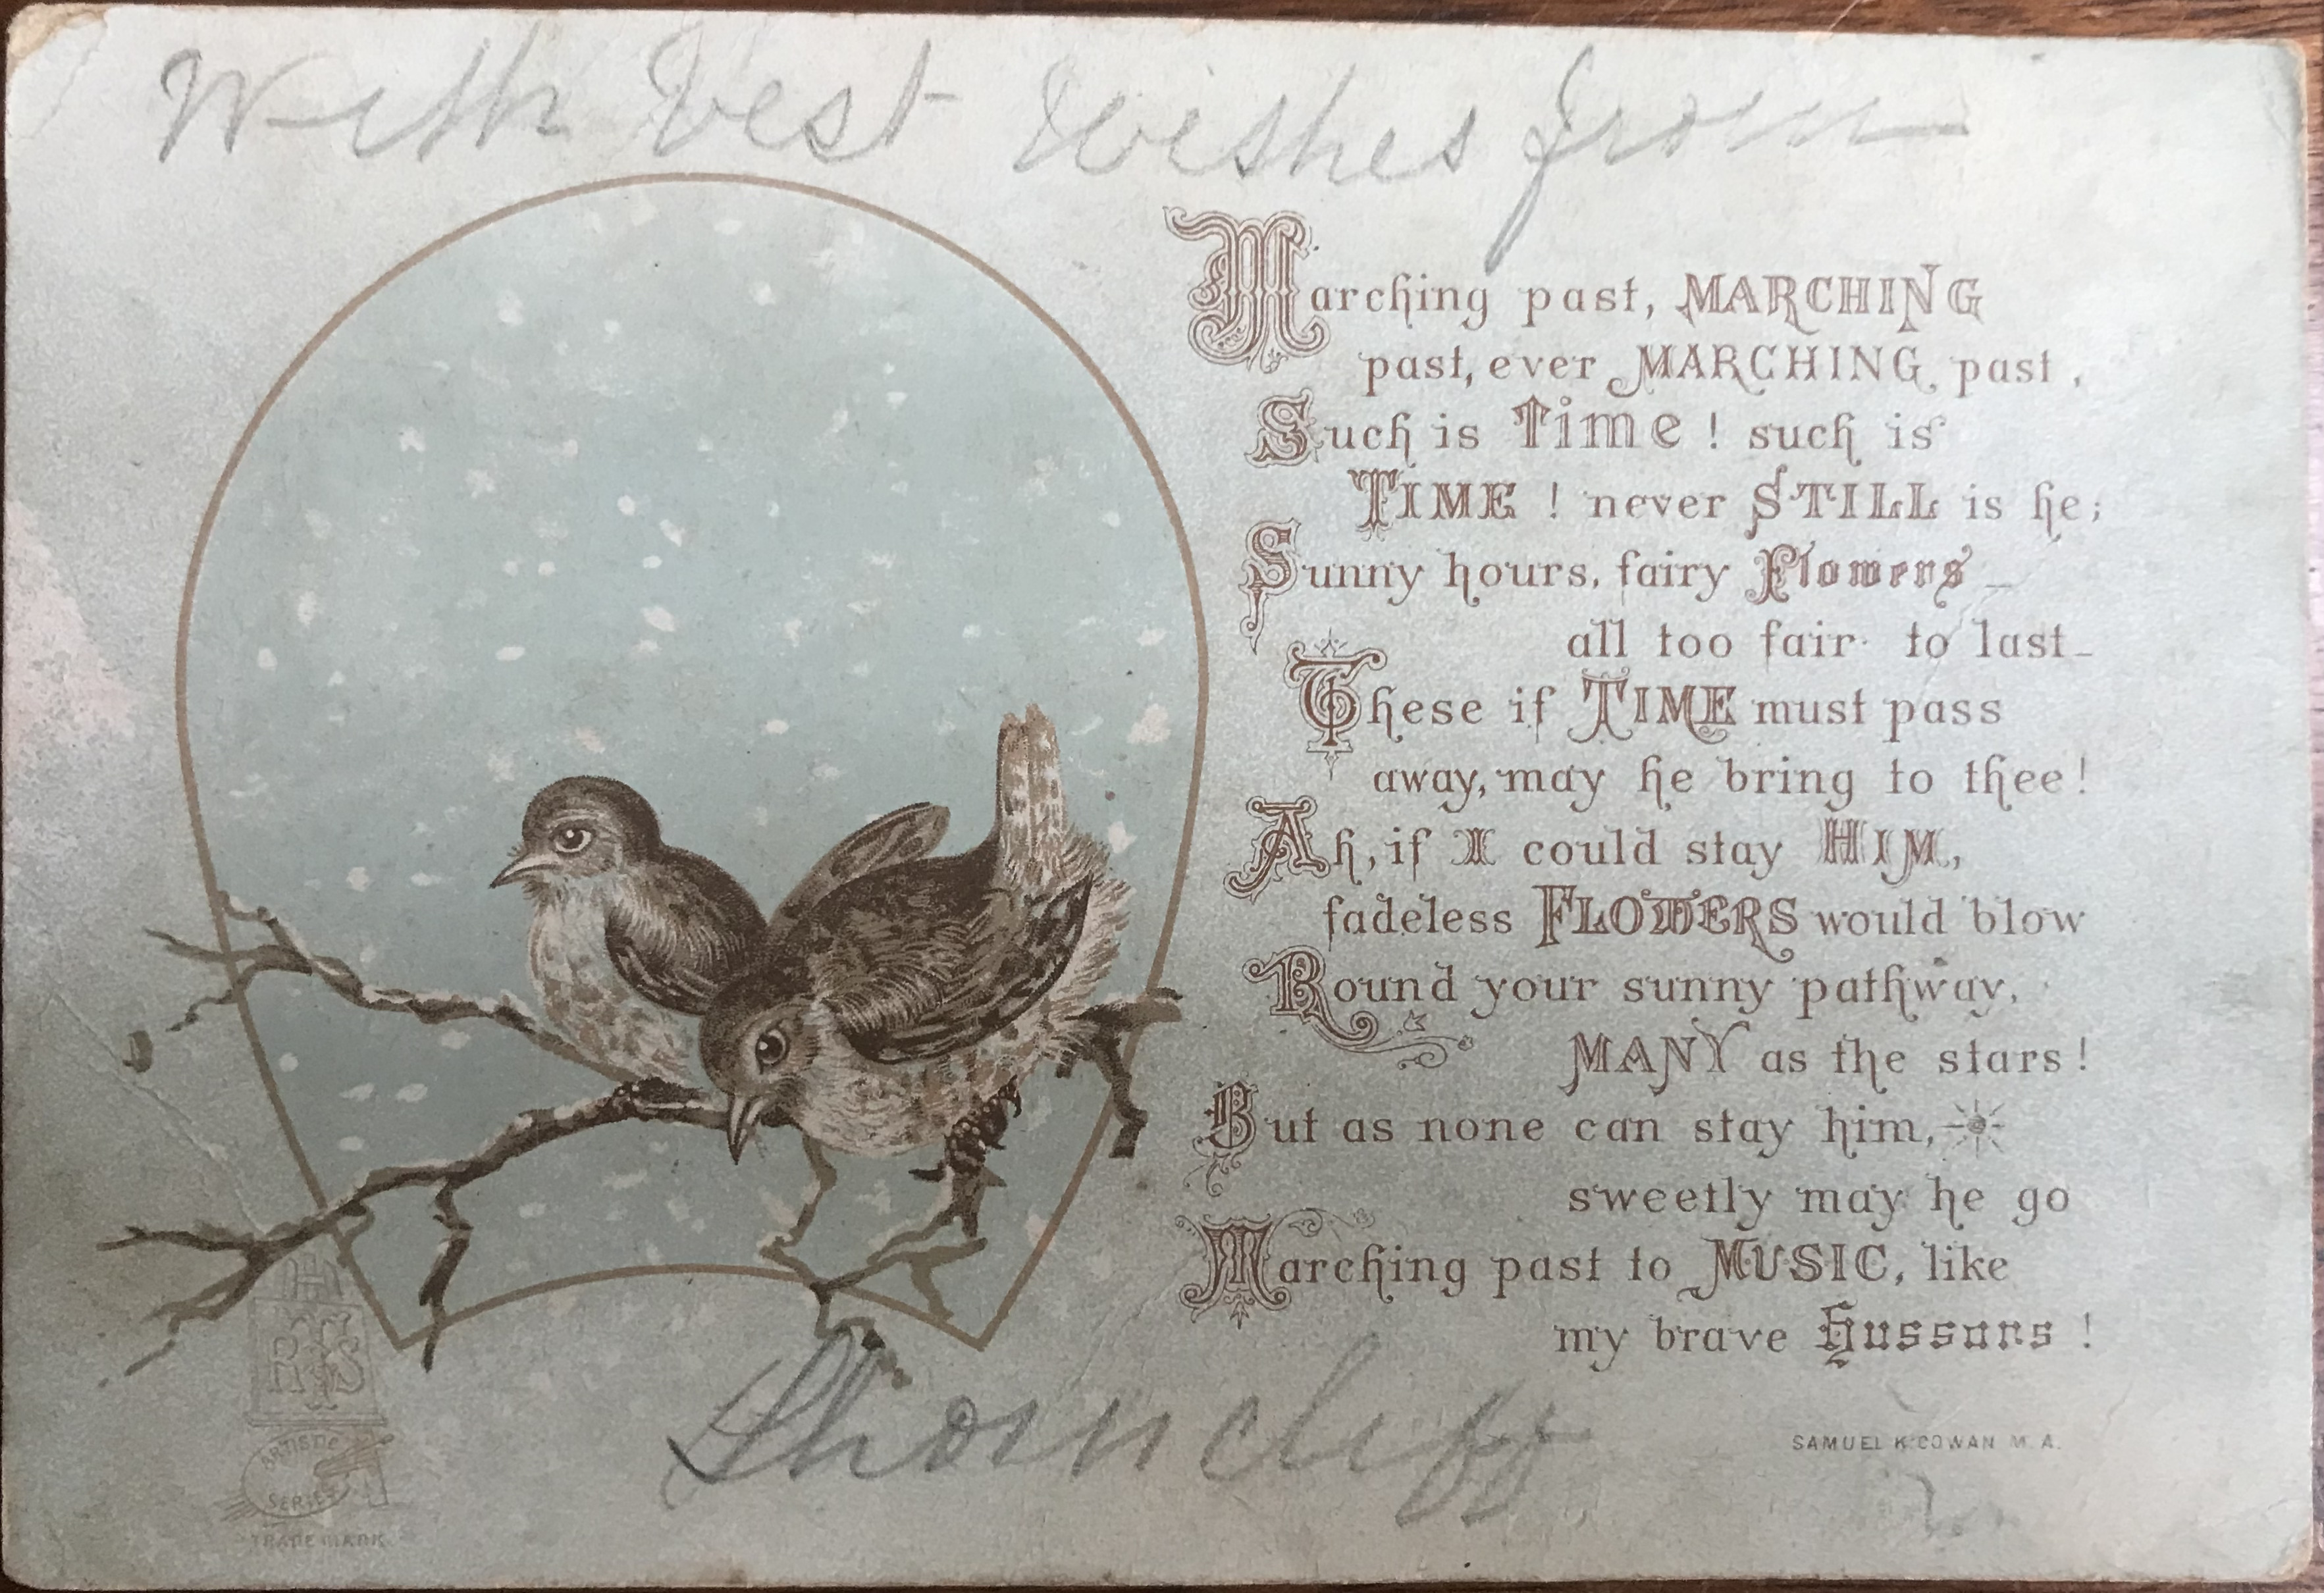 With best wishes from
Marching past, MARCHING
past, ever MARCHING past,
Such is Time! such is
TIME! never STILL is he;
Sunny hours, fairy Flowers_
all too fair to last_
These if TIME must pass
away, may he bring to thee!
Ah, if I could stay HIM,
fadeless FLOWERS would blow
Round your sunny pathway,
MANY as the stars!
But as none can stay him,
sweetly may he go
Marching past to MUSIC, like
my brave Hussars!
Shorncliff
SAMUEL K. COWAN M.A.
RTS
ARTISTIC
SERIES
TRADE MARK